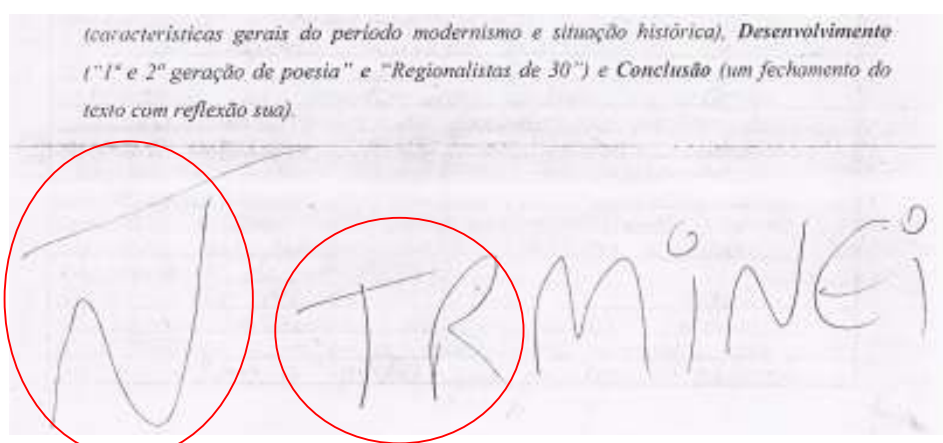 (características gerais do período modernismo e situação histórica), Desenvolvimento
("1ª e 2ª geração de poesia" e "Regionalistas de 30") e Conclusão (um fechamento do
texto com reflexão sua).
N̄ TRMiNEi